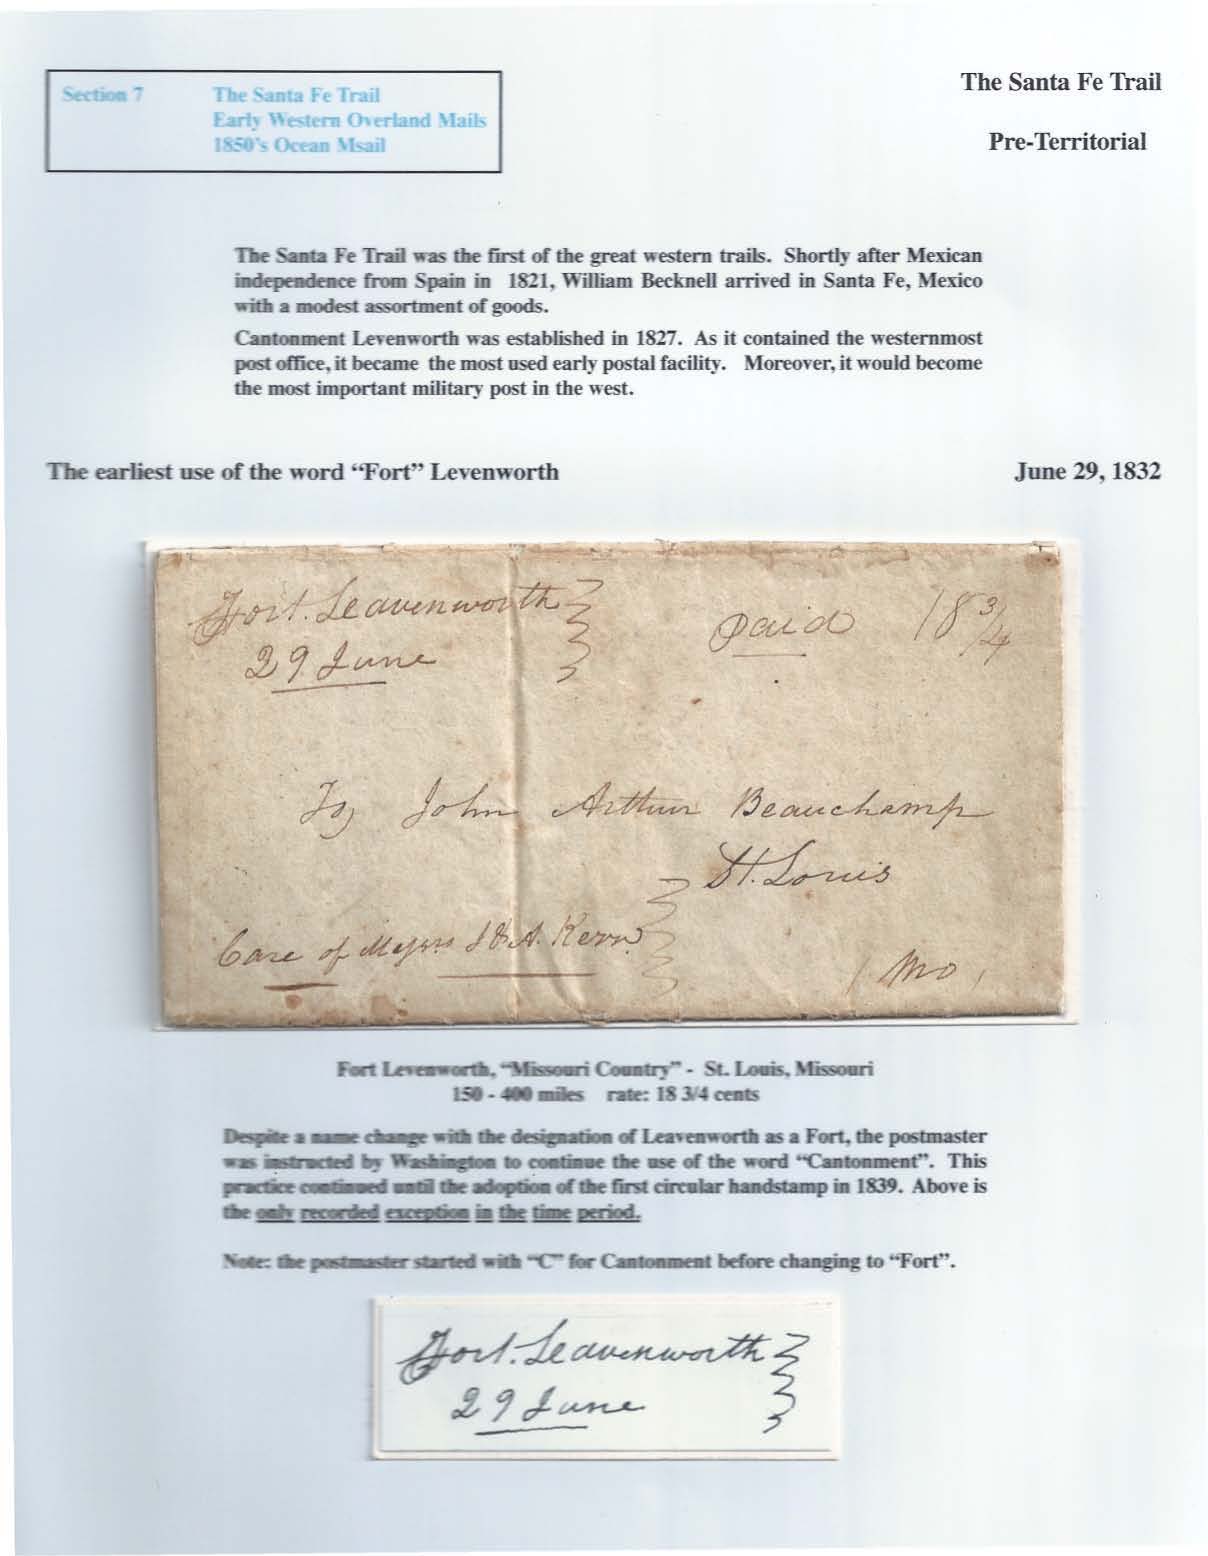 Section 7 The Santa Fe Trail
Early Western Overland Mails
1850's Ocean Msail
The Santa Fe Trail
Pre-Territorial
The Santa Fe Trail was the first of the great western trails. Shortly after Mexican
independence from Spain in 1821, William Becknell arrived in Santa Fe, Mexico
with a modest assortment of goods.
Cantonment Levenworth was established in 1827. As it contained the westernmost
post office, it became the most used early postal facility. Moreover, it would become
the most important military post in the west.
The earliest use of the word “Fort” Levenworth June 29, 1832
Fort. Leavenworth
29 June
paid 18 3/4
To John Arthur Beauchamp
St. Louis
Care of Messrs J & A. Kerr
Mo,
Fort Levenworth, “Missouri Country” - St. Louis, Missouri
150 - 400 miles rate: 18 3/4 cents
Despite a name change with the designation of Leavenworth as a Fort, the postmaster
was instructed by Washington to continue the use of the word “Cantonment”. This
practice continued until the adoption of the first circular handstamp in 1839. Above is
the only recorded exception in the time period.
Note: the postmaster started with “C” for Cantonment before changing to “Fort”.
Fort. Leavenworth
29 June